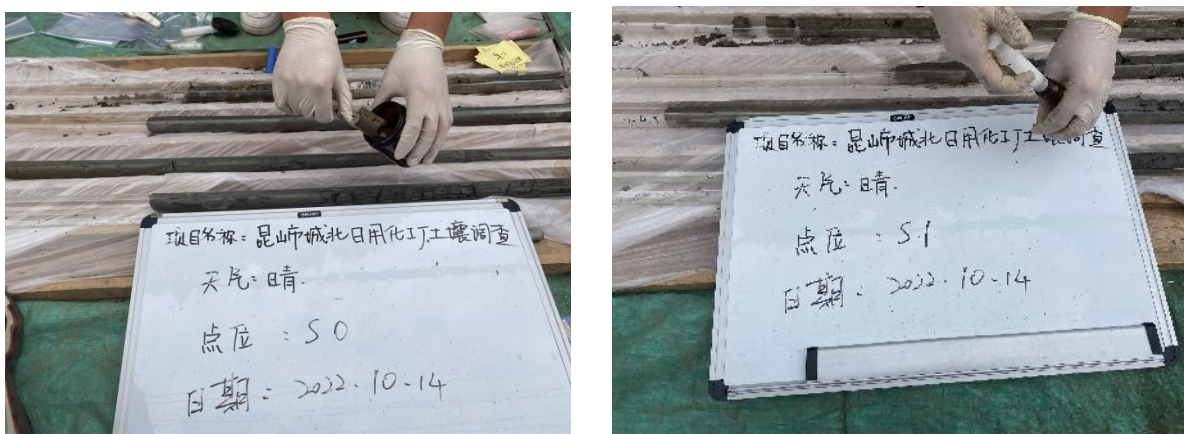 项目名称：昆山市城北日用化工厂土壤调查
天气：晴.
点位：S0
日期：2022.10.14
项目名称：昆山市城北日用化工厂土壤调查
天气：晴.
点位：S1
日期：2022.10.14